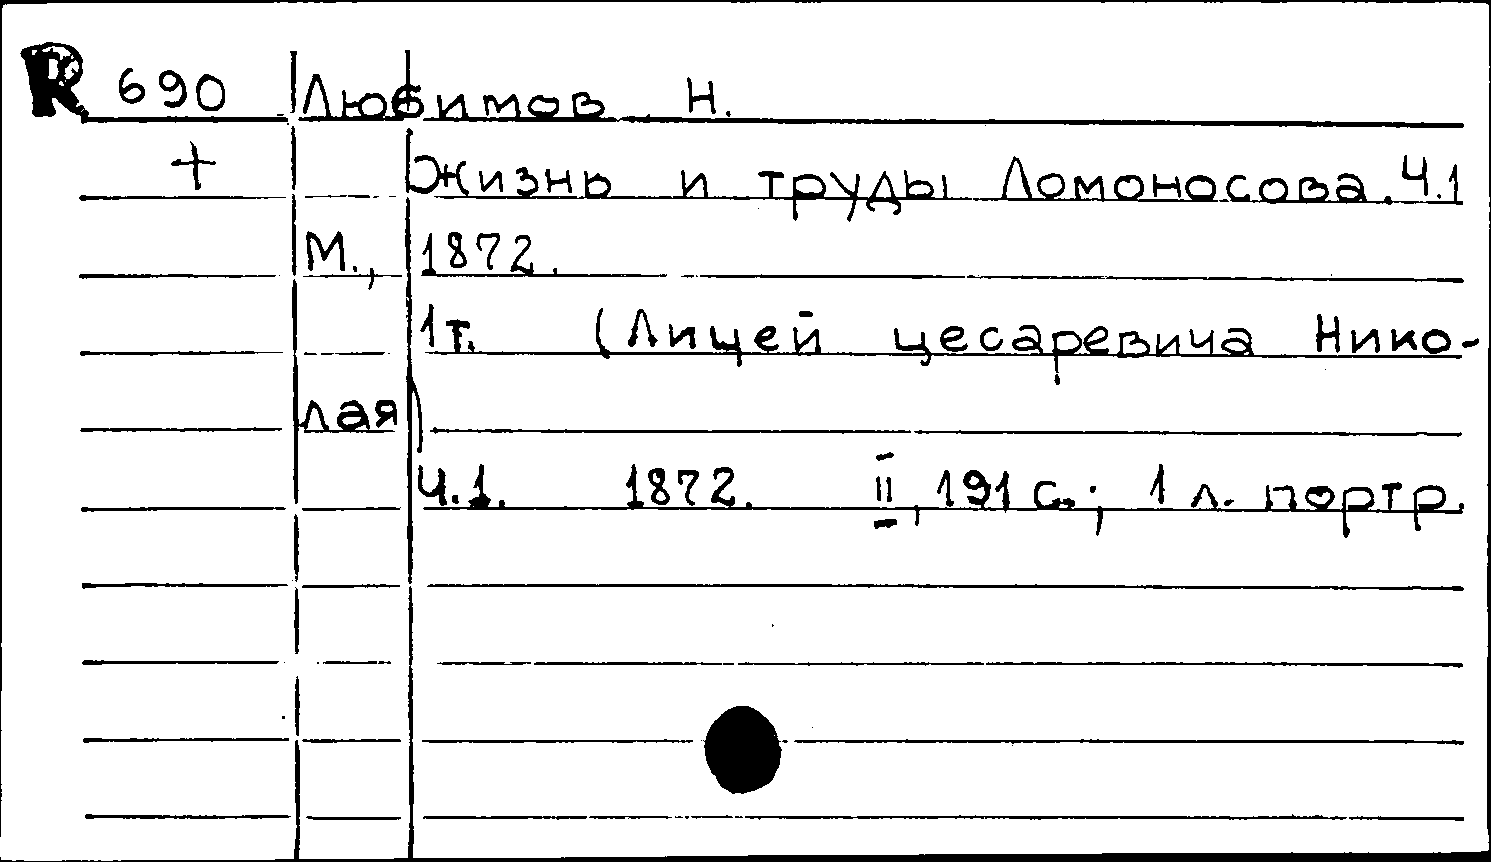 R 690 Любимов Н.
+ Жизнь и труды Ломоносова. Ч.1
М., 1872.
1т. (Лицей цесаревича Нико-
лая)
Ч.1. 1872. II, 191 с.; 1 л. портр.